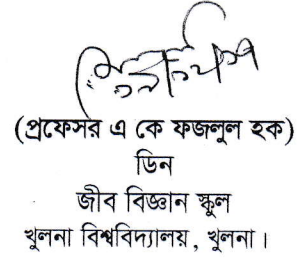 (প্রফেসর এ কে ফজলুল হক)
ডিন
জীব বিজ্ঞান স্কুল
খুলনা বিশ্ববিদ্যালয়, খুলনা।